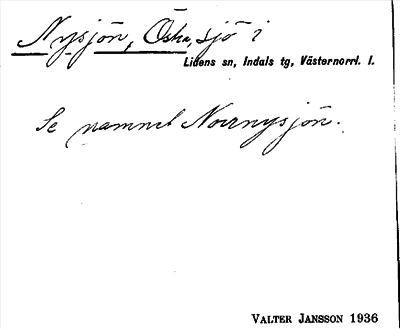 Nysjön, Östra, sjö i
Lidens sn, Indals tg, Västernorrl. l.
Se namnet Norrnysjön.
VALTER JANSSON 1936